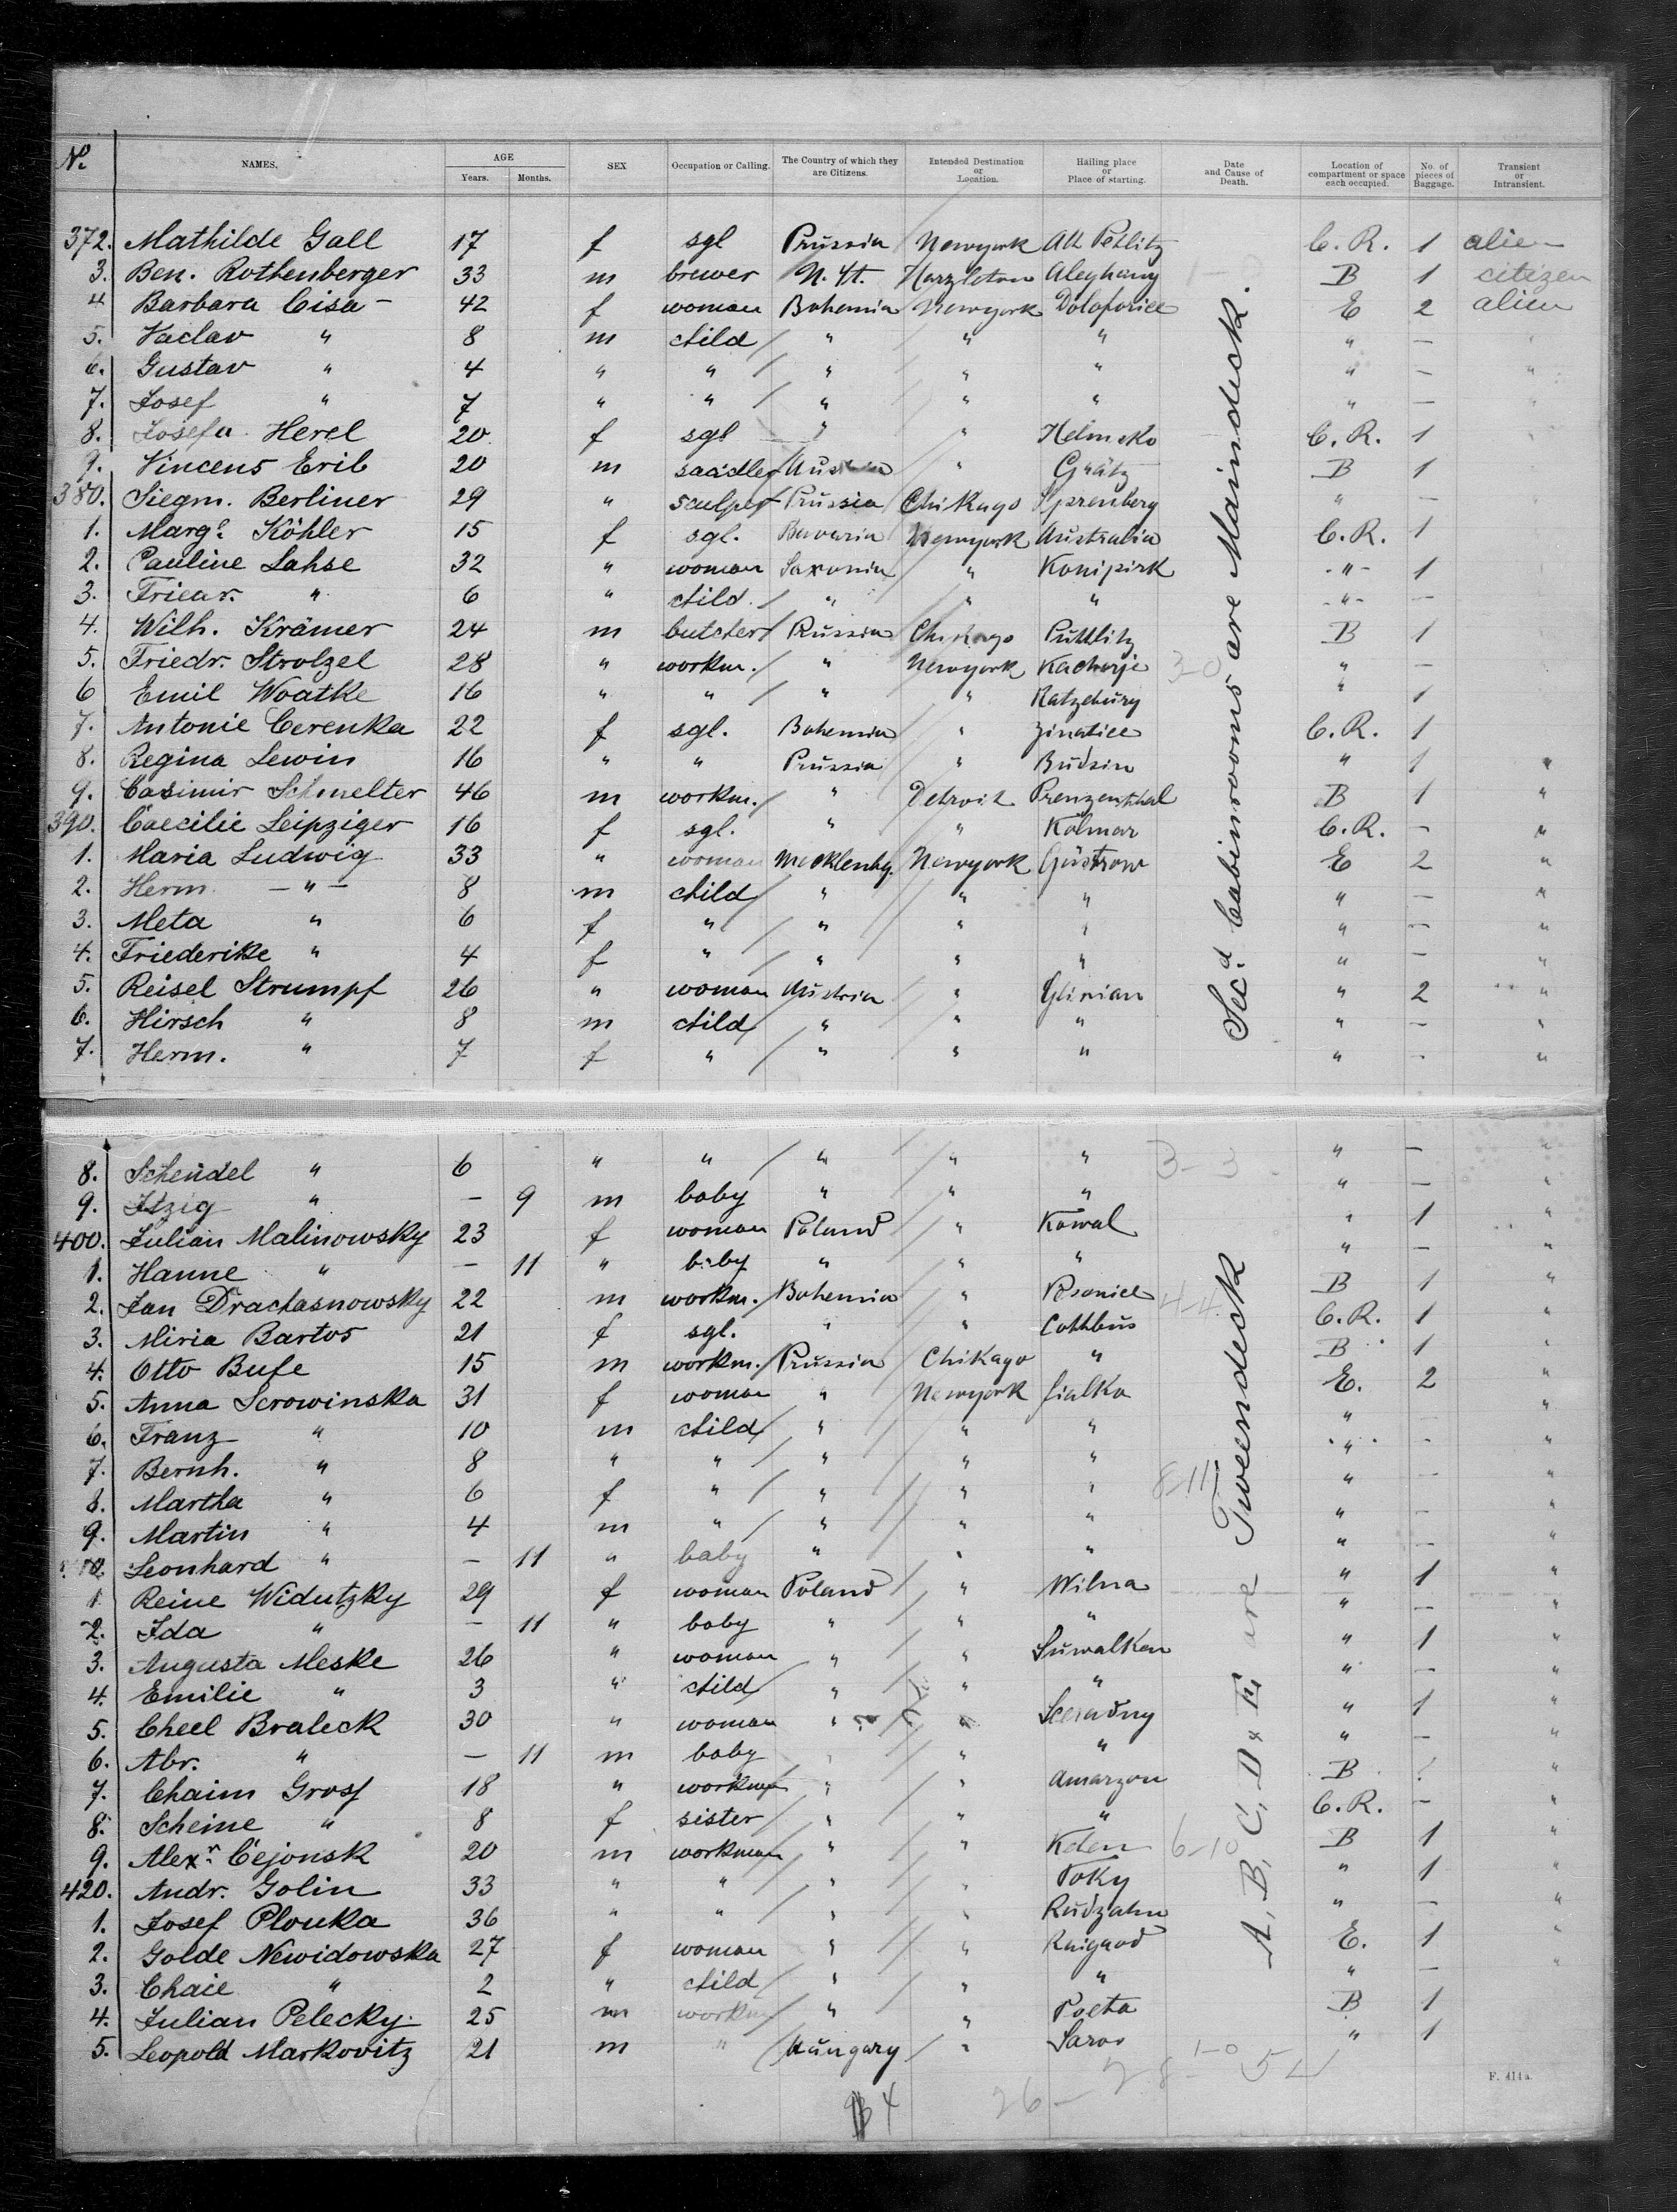 No. NAMES. AGE Years. Months. SEX Occupation or Calling. The Country of which they are Citizens. Intended Destination or Location. Hailing place or Place of starting. Date and Cause of Death. Location of compartment or space each occupied. No. of pieces of Baggage. Transient or Intransient.
372. Mathilde Gall 17 f sgl Prussia Newyork Alt Petlitz C. R. 1 alien
3. Ben. Rothenberger 33 m brewer N. Yt. Hazzleton Aleghany B 1 citizen
4 Barbara Cisa - 42 f woman Bohemia Newyork E 2 alien
5. Vaclav " 8 m child " " " " - "
6. Gustav " 4 " " " " " " - "
7. Josef " 7 " " " " " " - "
8. Josefa Herel 20 f sgl " " Helmeko C. R. 1
9. Vincens Erib 20 m saadler Austria " Grätz B 1
380. Siegm. Berliner 29 " sculpet Prussia Chikago Sprenberg " -
1. Marg. Köhler 15 f sgl. Bavaria Newyork Australia C. R. 1
2. Pauline Lahse 32 " woman Saxonia " Konipirk - " - 1
3. Friear. " 6 " child. " " " - " - -
4. Wilh. Krämer 24 m butcher Russia Chikago Puttlitz B 1
5. Friedr. Strolzel 28 " workm. " Newyork Kacharje 3-0 " -
6 Emil Woatke 16 " " " " Ratzebury " 1
7. Antonie Cerenka 22 f sgl. Bohemia " Zinatice C. R. 1
8. Regina Lewin 16 " " Prussia " Budsin " 1 "
9. Casimir Schmelter 46 m workm. " Detroit Prenzenthal B 1 "
390. Caecilie Leipziger 16 f sgl. " " Kolmar C. R. - "
1. Maria Ludwig 33 " woman Mecklenbg. Newyork Güstrow E 2 "
2. Herm. - " - 8 m child " " " " - "
3. Meta " 6 f " " " " " - "
4. Friederike " 4 f " " " " " - "
5. Reisel Strumpf 26 " woman Austria " Glinian " 2 "
6. Hirsch " 8 m child " " " " - "
7. Herm. " 7 f " " " " " - "
Secd Cabinrooms are Maindeck.
8. Scheudel " 6 " " " " " 3-3 " - "
9. Itzig " - 9 m baby " " " " - "
400. Julian Malinowsky 23 f woman Poland " Kowal " 1 "
1. Hanne " - 11 " baby " " " " - "
2. Jan Drachasnowsky 22 m workm. Bohemia " 4-4 B 1 "
3. Miria Bartos 21 f sgl. " " Cottbus C. R. 1 "
4. Otto Bufe 15 m workm. Prussia Chikago " B 1 "
5. Anna Scrowinska 31 f woman " Newyork Jialka E. 2 "
6. Franz " 10 m child " " " " - "
7. Bernh. " 8 " " " " " " - "
8. Martha " 6 f " " " " 8-11 " - "
9. Martin " 4 m " " " " " - "
10. Leonhard " - 11 " baby " " " " - "
1 Reine Widutzky 29 f woman Poland " Wilna " 1 "
2. Ida " - 11 " baby " " " " - "
3. Augusta Meske 26 " woman " " Suwalken " 1 "
4. Emilie " 3 " child " " " " - "
5. Cheel Braleck 30 " woman " " " 1 "
6. Abr. " - 11 m baby " " " " - "
7. Chaim Gross 18 " workmn " " Amarzon B "
8. Scheine " 8 f sister " " " C. R. - "
9. Alexr. Cejonsk 20 m workman " " Kden 6-10 B 1 "
420. Andr. Golin 33 " " " " Poky " 1 "
1. Josef Plouka 36 " " " " Rudzahn " - "
2. Golde Newidowska 27 f woman " " Raigrod E. 1 "
3. Chaie " 2 " child " " " " - "
4. Julian Pelecky. 25 m workm " " Poeta B 1
5. Leopold Markovitz 21 m " Hungary " Saros " 1
A, B, C, D & E are Tweendeck
26 - 28
F. 414a.